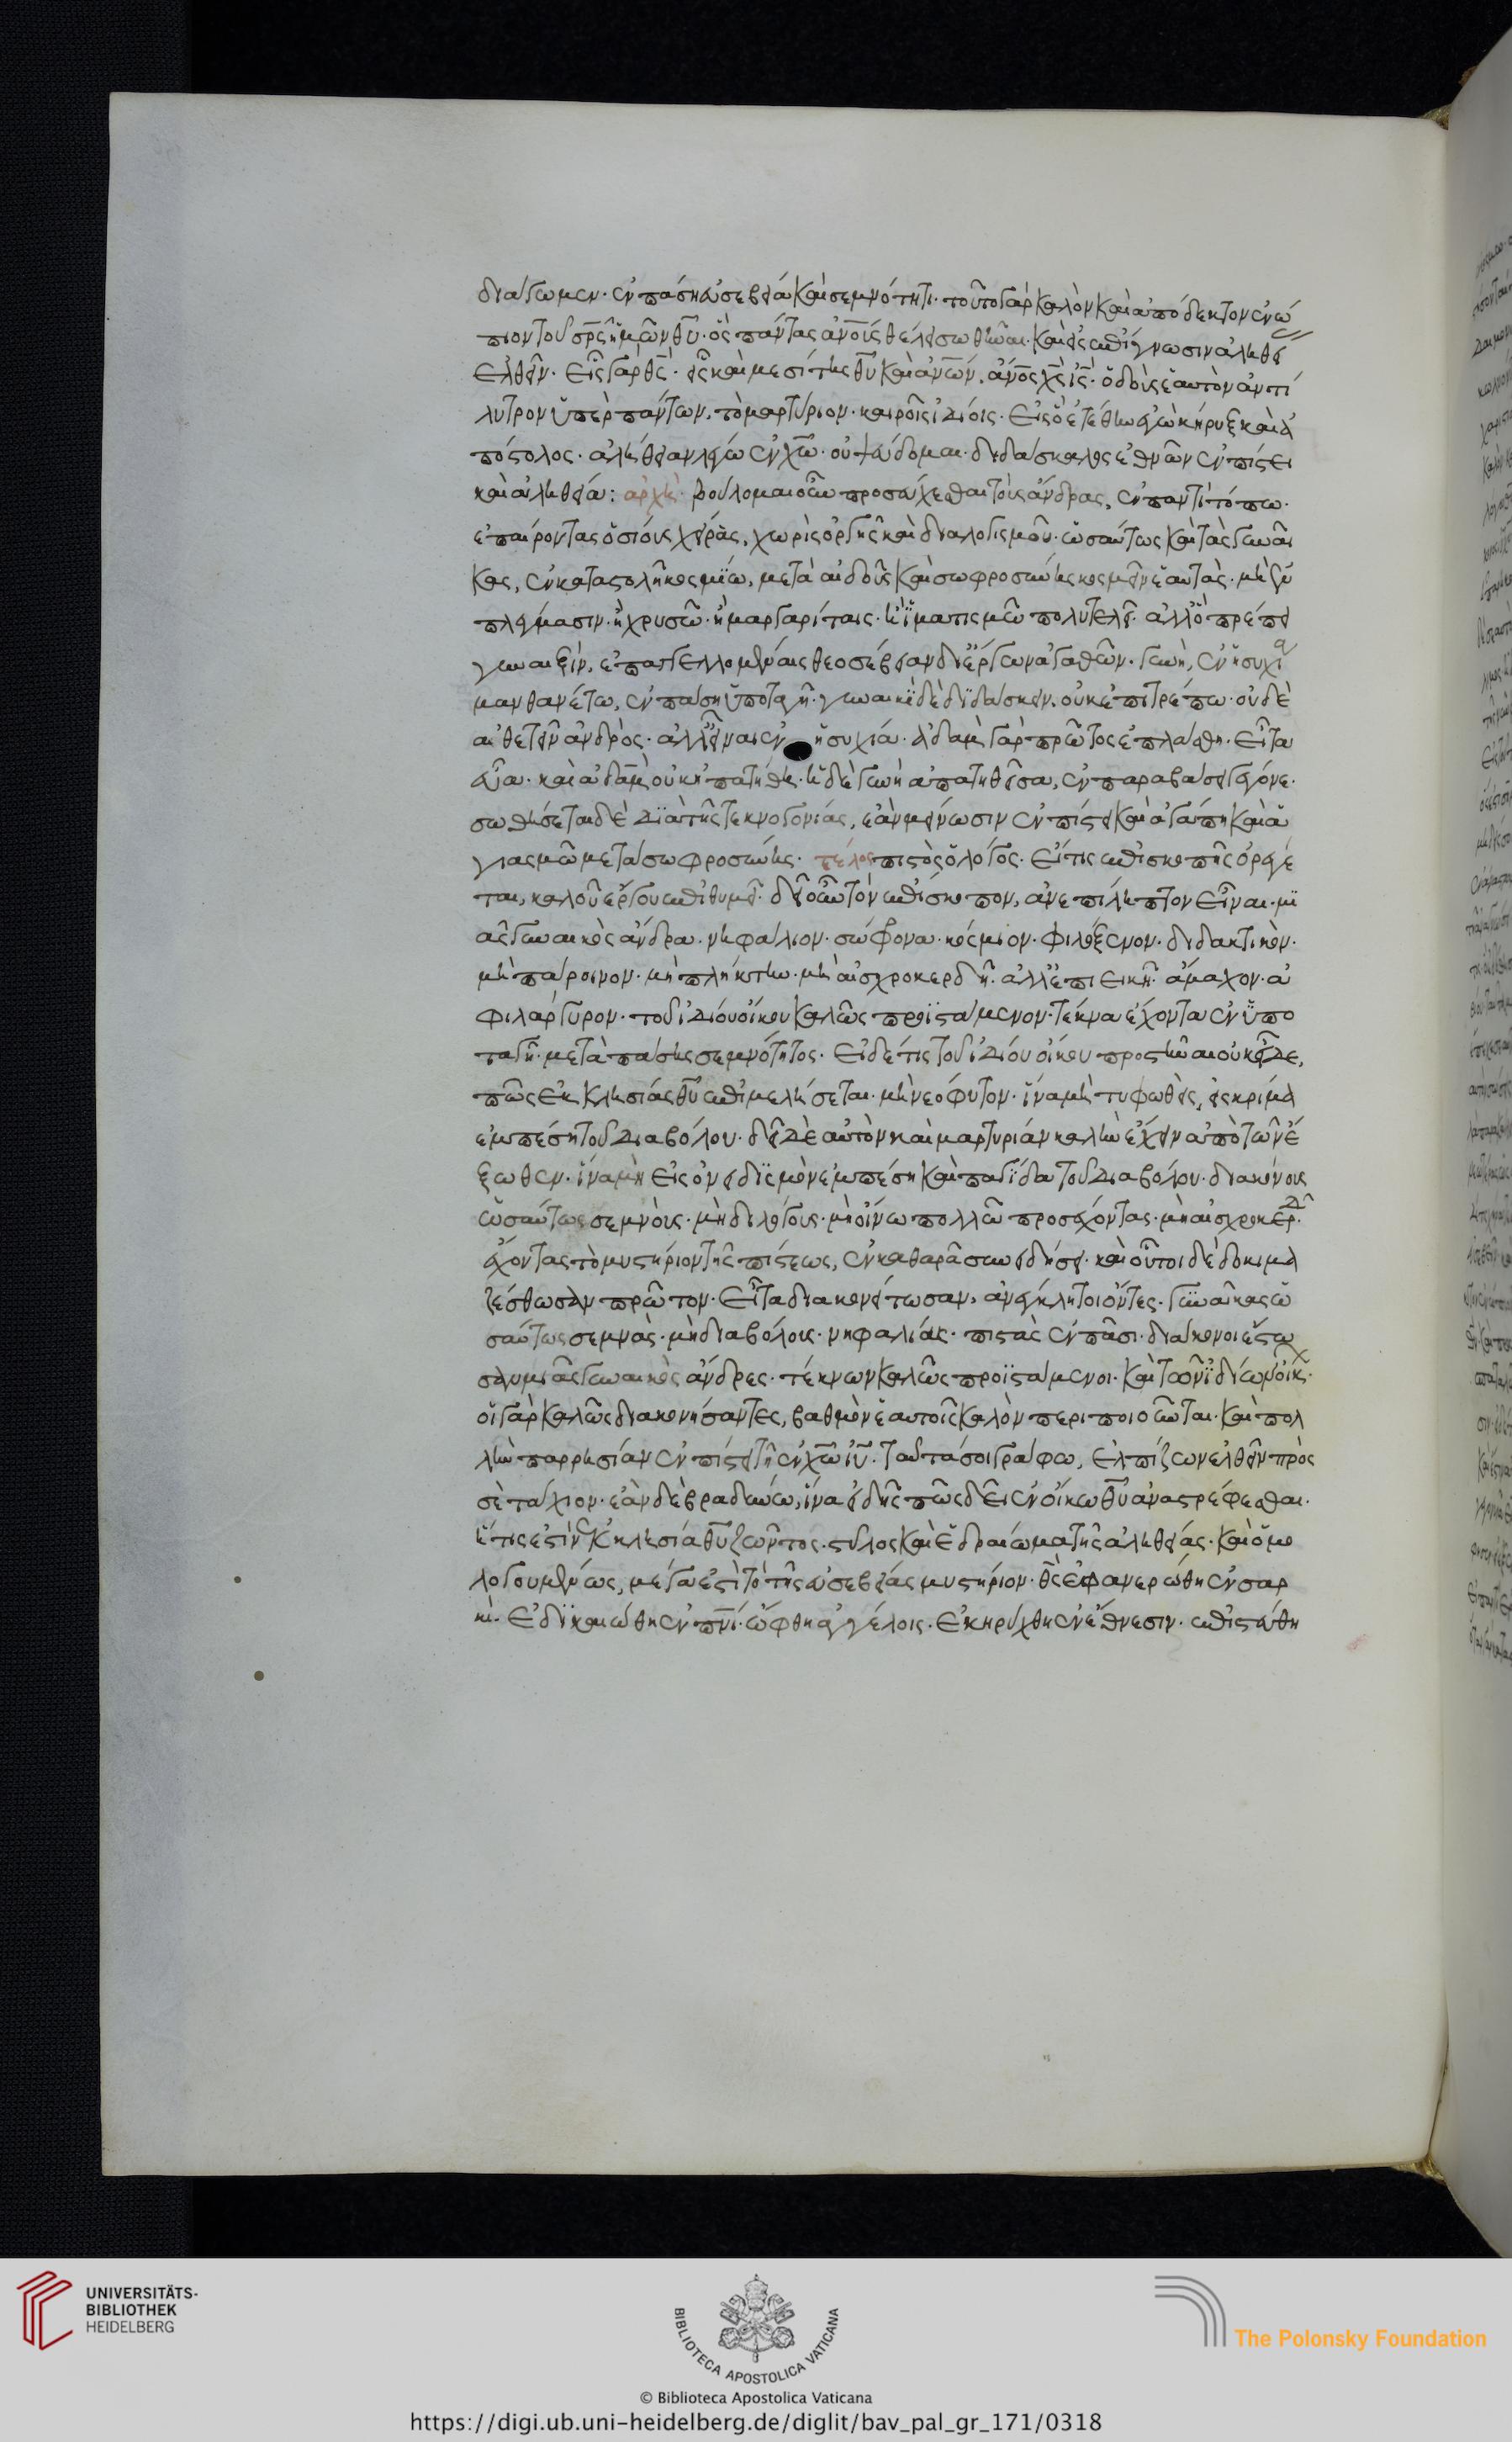 διάγωμεν· ἐν πάση εὐσεβεία καὶ σεμνότητι· τοῦτο γὰρ καλὸν καὶ ἀπόδεκτον ἐνώ
πιον τοῦ σρ̅ς ἡμῶν θυ̅· ὃς πάντας ἀνους̅ θέλει σωθῆναι· καὶ εἰς ἐπίγνωσιν ἀληθεί
ἐλθεῖν· εἷς γὰρ θς̅· εἷς καὶ μεσίτης θυ̅ καὶ ἀνων̅, ἀνος̅ χς̅ ις̅· ὁ δοὺς ἑαυτὸν ἀντί
λυτρον ὑπὲρ πάντων, τὸ μαρτύριον· καιροῖς ἰδίοις· εἰς ὃ ἐτέθην ἐγὼ κήρυξ καὶ ἀ
πόστολος· ἀλήθειαν λέγω ἐν χω̅· οὐ ψεύδομαι· διδάσκαλος ἐθνῶν ἐν πίστει
καὶ ἀληθεία: ἀρχὴ· βούλομαι οὖν προσεύχεσθαι τοὺς ἄνδρας, ἐν παντὶ τόπω·
ἐπαίροντας ὁσίους χεῖρας, χωρὶς ὀργῆς καὶ διαλογισμοῦ· ὡσαύτως καὶ τὰς γυναῖ
κας, ἐν καταστολῆ κοσμίω, μετὰ αἰδοῦς καὶ σωφροσύνης κοσμεῖν ἑαυτὰς· μὴ ἐν
πλέγμασιν· ἢ χρυσῶ· ἢ μαργαρίταις· ἢ ἱματισμῶ πολυτελεῖ· ἀλλ' ὃ πρέπει
γυναιξὶν, ἐπαγγελλομέναις θεοσέβειαν δι' ἔργων ἀγαθῶν· γυνὴ, ἐν ἡσυχία
μανθανέτω, ἐν πάση ὑποταγῆ· γυναικὶ δὲ διδάσκειν, οὐκ ἐπιτρέπω· οὐδὲ
αὐθετεῖν ἀνδρὸς· ἀλλ' εἶναι ἐν ἡσυχία· ἀδὰμ γὰρ πρῶτος ἐπλάσθη· εἶτα
εὖα· καὶ ἀδὰμ οὐκ ἠπατήθη· ἡ δὲ γυνὴ ἀπατηθεῖσα, ἐν παραβάσει γέγονε·
σωθήσεται δὲ διὰ τῆς τεκνογονίας, ἐὰν μείνωσιν ἐν πίστει καὶ ἀγάπη καὶ ἁ
γιασμῶ μετὰ σωφροσύνης· τέλος πιστὸς ὁ λόγος· εἴ τις ἐπισκοπῆς ὀρέγε
ται, καλοῦ ἔργου ἐπιθυμεῖ· δεῖ οὖν τὸν ἐπίσκοπον, ἀνεπίληπτον εἶναι· μι
ᾶς γυναικὸς ἄνδρα· νηφάλιον· σώφρονα· κόσμιον· φιλόξενον· διδακτικὸν·
μὴ πάροινον· μὴ πλήκτην· μὴ αἰσχροκερδῆ· ἀλλ' ἐπιεικῆ· ἄμαχον· ἀ
φιλάργυρον· τοῦ ἰδίου οἴκου καλῶς προϊστάμενον· τέκνα ἔχοντα ἐν ὑπο
ταγῆ· μετὰ πάσης σεμνότητος· εἰ δέ τις τοῦ ἰδίου οἴκου προστῆναι οὐκ οἶδε,
πῶς ἐκκλησίας θυ̅ ἐπιμελήσεται· μὴ νεόφυτον· ἵνα μὴ τυφωθεὶς, εἰς κρίμα
ἐμπέση τοῦ διαβόλου· δεῖ δὲ αὐτὸν καὶ μαρτυρίαν καλὴν ἔχειν ἀπὸ τῶν ἔ
ξωθεν· ἵνα μὴ εἰς ὀνειδισμὸν ἐμπέση καὶ παγίδα τοῦ διαβόλου· διακόνους
ὡσαύτως σεμνοὺς· μὴ διλόγους· μὴ οἴνω πολλῶ προσέχοντας· μὴ αἰσχροκερδ
ἔχοντας τὸ μυστήριον τῆς πίστεως, ἐν καθαρᾶ συνειδήσει· καὶ οὗτοι δὲ δοκιμα
ζέσθωσαν πρῶτον· εἶτα διακονείτωσαν, ἀνέγκλητοι ὄντες· γυναῖκας ὡ
σαύτως σεμνὰς· μὴ διαβόλους· νηφαλίας· πιστὰς ἐν πᾶσι· διάκονοι ἔστω
σαν μιᾶς γυναικὸς ἄνδρες· τέκνων καλῶς προϊστάμενοι· καὶ τῶν ἰδίων οἴκ
οἱ γὰρ καλῶς διακονήσαντες, βαθμὸν ἑαυτοῖς καλὸν περιποιοῦνται· καὶ πολ
λὴν παρρησίαν ἐν πίστει τῆ ἐν χω̅ ιυ̅· ταῦτά σοι γράφω, ἐλπίζων ἐλθεῖν πρὸς
σὲ τάχιον· ἐὰν δὲ βραδύνω, ἵνα εἰδῆς πῶς δεῖ ἐν οἴκω θυ̅ ἀναστρέφεσθαι·
ἥτις ἐστὶν ἐκκλησία θυ̅ ζῶντος· στύλος καὶ ἑδραίωμα τῆς ἀληθείας· καὶ ὁμο
λογουμένως, μέγα ἐστὶ τὸ τῆς εὐσεβείας μυστήριον· θς̅ ἐφανερώθη ἐν σαρ
κὶ· ἐδικαιώθη ἐν πνι̅· ὤφθη ἀγγέλοις· ἐκηρύχθη ἐν ἔθνεσιν· ἐπιστεύθη
UNIVERSITÄTS-
BIBLIOTHEK
HEIDELBERG
BIBLIOTECA APOSTOLICA VATICANA
© Biblioteca Apostolica Vaticana
The Polonsky Foundation
https://digi.ub.uni-heidelberg.de/diglit/bav_pal_gr_171/0318